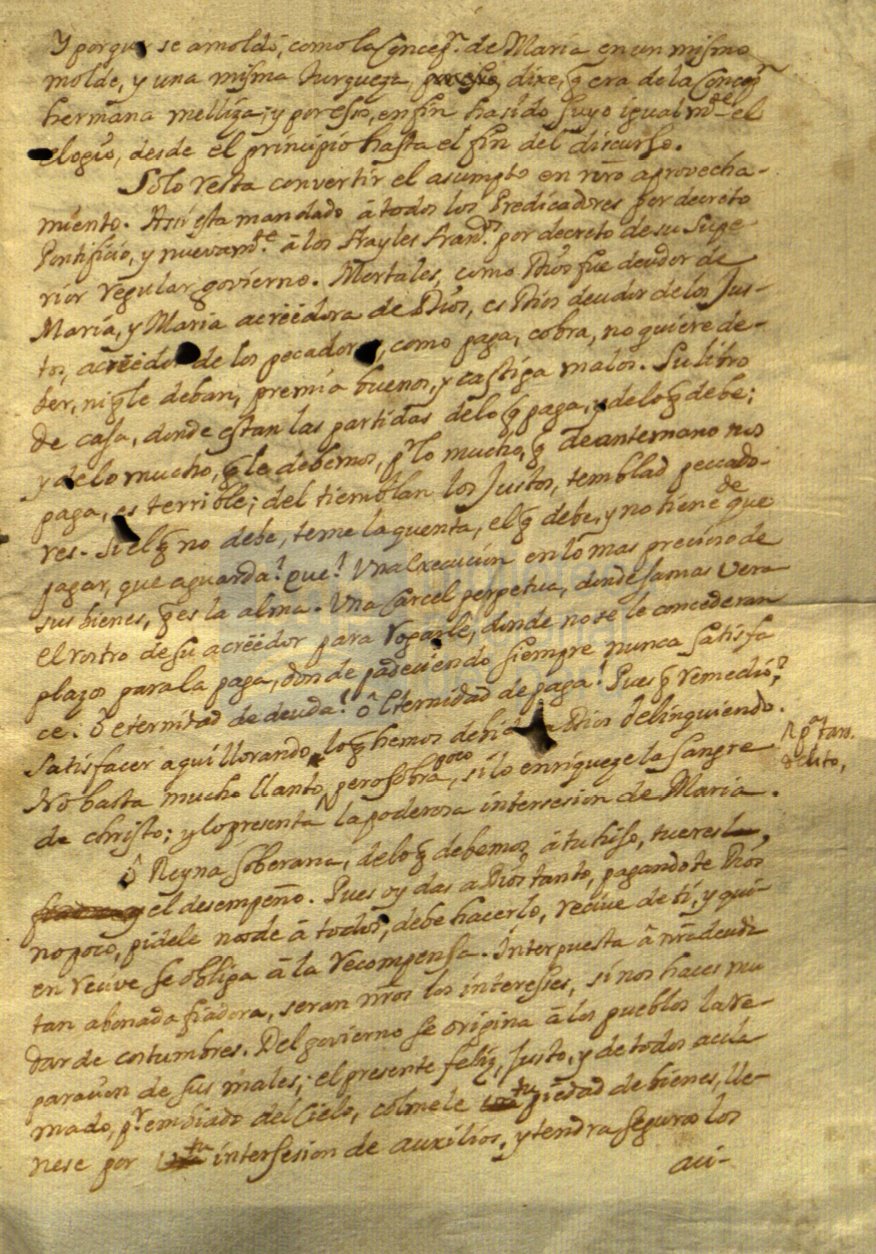 Y porque se amoldó, como la Concepn. de Maria en un mismo
molde, y una misma turqueza, dixe, q̃ era de la Concepn
hermana melliza; y por eso, en fin ha sido suyo igualmde. el
elogio, desde el principio hasta el fin del discurso.
Solo resta convertir el asumpto en nrõ aprovecha-
miento. Assi esta mandado â todos los Predicadores por decreto
Pontificio, y nuevamte. â los frayles franos. por decreto de su Supe
rior regular govierno. Mortales, como Dios fue deudor de
Maria, y Maria acrëedora de Dios, es Dios deudor de los Jus-
tos, acrëedor de los pecadores, como paga, cobra, no quiere de-
ber, ni q̃ le deban, premia buenos, y castiga malos. Su libro
de casa, donde estan las partidas de lo q̃ paga, y de lo q̃ debe;
y de lo mucho, q̃ le debemos, pr lo mucho, q̃ de antemano nos
paga, es terrible; del tiemblan los Justos, temblad peccado-
res. Si el q̃ no debe, teme la quenta, el q̃ debe, y no tiene de que
pagar, que aguarda? Que? Una execucion en lo mas precioso de
sus bienes, q̃ es la alma. Una Carcel perpetua, donde jamas vera
el rostro de su acrëedor para rogarle, donde no se le concederan
plazos para la paga, donde padeciendo siempre nunca satisfa
ce. ô eternidad de deuda! ô Eternidad de paga! Pues q̃ remedio?
Satisfacer aqui llorando, lo q̃ hemos debido a Dios delinquiendo.
pa tan.
delito,
No basta mucho llanto, pero sobra poco, si lo enriqueze la sangre
de christo; y lo presenta la poderosa intersesion de Maria.
ô Reyna soberana, de lo q̃ debemos â tu hijo, tu eres
el desempeño. Pues oy das a Dios tanto, pagandote Dios
no poco, pidele nos de â todos, debe hacerlo, recive de ti, y qui-
en recive se obliga â la recompensa. Interpuesta â nrã deuda
tan abonada fiadora, seran nrõs los interesses, si nos haces mu
dar de costumbres. Del govierno se origina â los pueblos la re-
paracion de sus males; el presente feliz, justo, y de todos acla
mado, pr. embiado del Cielo, colmele tu piedad de bienes, lle-
nese por tu intersesion de auxilios, y tendra seguros los
aci-